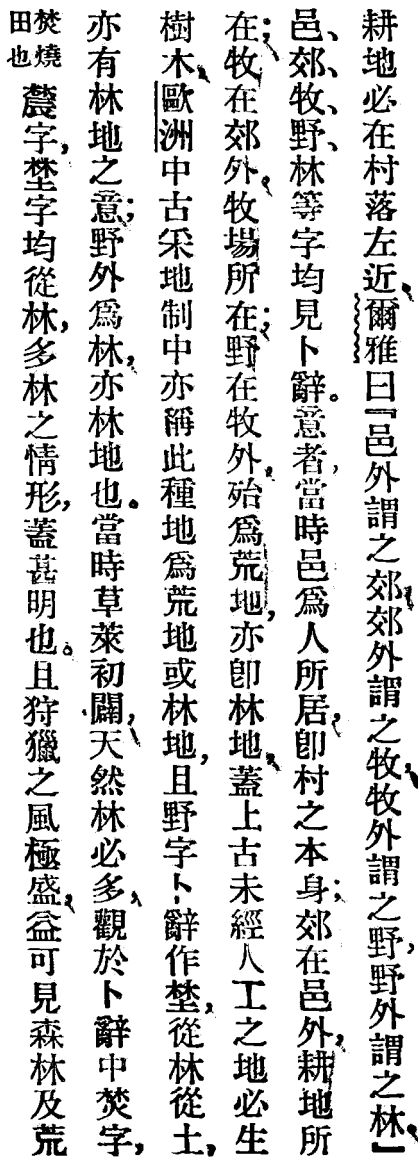 耕地必在村落左近、爾雅曰『邑外謂之郊、郊外謂之牧、牧外謂之野、野外謂之林。』
邑、郊、牧、野、林等字均見卜辭。意者，當時邑爲人所居，卽村之本身；郊在邑外，耕地所
在；牧在郊外，牧場所在；野在牧外，殆爲荒地，亦卽林地，蓋上古未經人工之地必生
樹木，歐洲中古采地制中亦稱此種地爲荒地或林地，且野字卜辭作埜，從林從土，
亦有林地之意；野外爲林，亦林地也。當時草萊初闢，天然林必多，觀於卜辭中焚字，
焚燒
田也
蓐字，埜字均從林，多林之情形，蓋甚明也。且狩獵之風極盛，益可見森林及荒